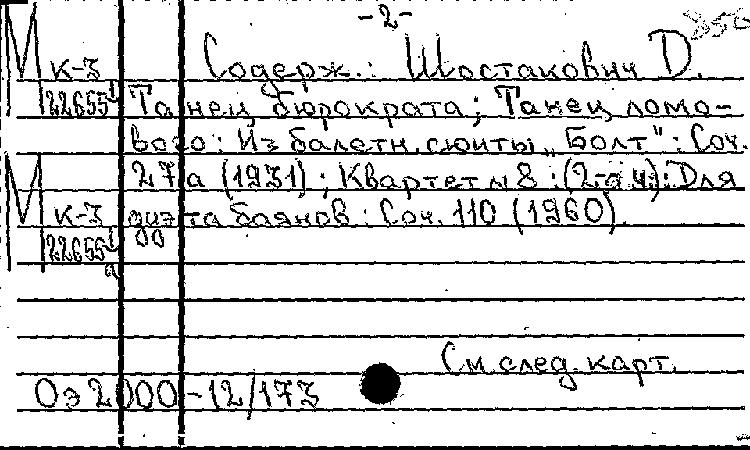 -2-
850
М К-3 Содерж.: Шостакович Д.
22655 Танец бюрократа; Танец ломо-
вого: Из балетн. сюиты „Болт": Соч.
М 27а (1931); Квартет № 8: (2-я ч.): Для
К-3 дуэта баянов: Соч. 110 (1960).
22655
См. след. карт.
Оэ 2000-12/173